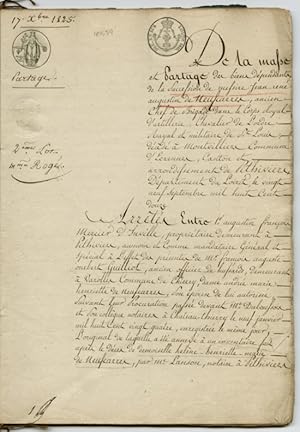 17 Xbre 1825.
Partage
2ème Lot
De la masse
et Partage des biens dépendants
de la succession de messire Jean rené
augustin de Meufcarres, ancien
Chef de Brigade dans le Corps Royal
d'artillerie, Chevalier de l'ordre
Royal et militaire de St Louis
décédé à Montvilliers Commune
d'Escrennes, Canton et
arrondissement de Pithiviers
Département du Loiret le vingt
neuf septembre mil huit Cent
douze
Arrêtés Entre 1° augustin françois
Mercier d'Inville, propriétaire demeurant à
Pithiviers, au nom et Comme mandataire Général et
Spécial à l'effet des présentes de Mr françois auguste
Guilliot, ancien officier de hussards, demeurant
à Commune de Chierry, et dame
henriette de Meufcarres, son épouse de lui autorisée
suivant leur Procuration passée devant Me
et son collègue notaires à Château-thierry le neuf janvier
mil huit Cent vingt quatre, enregistrée le même jour,
L'original de laquelle a été annexé à un inventaire fait
après le décès de demoiselle helène henriette
de Meufcarres, par Me Lanson, notaire à Pithiviers